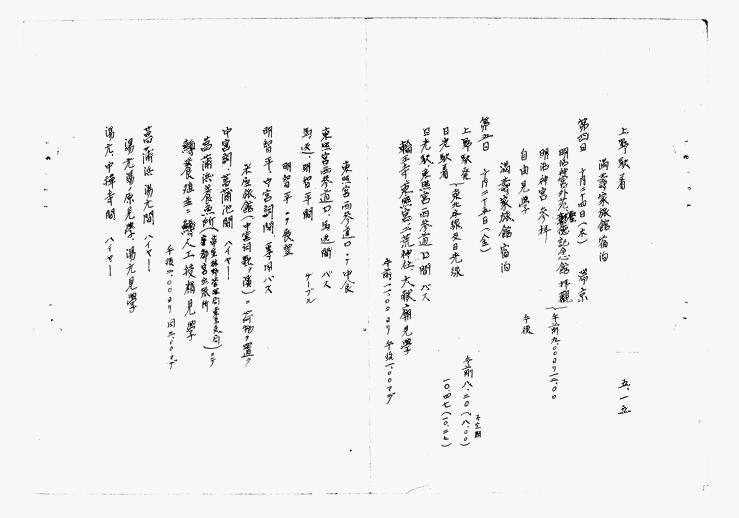 上野駅着 五、一五
満寿家旅館宿泊
第四日 十月二十四日(木) 帯京
明治神宮外苑聖徳記念館拝観(午前九、〇〇ヨリ一二、〇〇
明治神宮参拝
自由見学 午後
満寿家旅館宿泊
第五日 十月二十五日(金)
上野駅発 午前八、二〇(八、〇〇)
(東北本線及日光線
日光駅着 一〇、四七(一〇、二七)
日光駅東照宮西参道口間 バス
輪王寺東照宮二荒神社、大猷廟見学
午前一一、〇〇ヨリ午后一、〇〇マデ
東照宮西参道口ニテ中食
東照宮西参道口、馬返間 バス
馬返、明智平間 ケーブル
明智平ニテ展望
明智平、中宮祠間、専用バス
米屋旅館(中宮祠歌ヶ浜)ニ荷物ヲ置ク
中宮祠、菖蒲池間 ハイヤー
菖蒲浜養魚所
鱒養殖並ニ鱒人工授精見学
午后一、〇〇ヨリ同二、〇〇マデ
菖蒲浜 湯元間 ハイヤー
湯元湯原見学、湯元見学
湯元、中禅寺間 ハイヤー